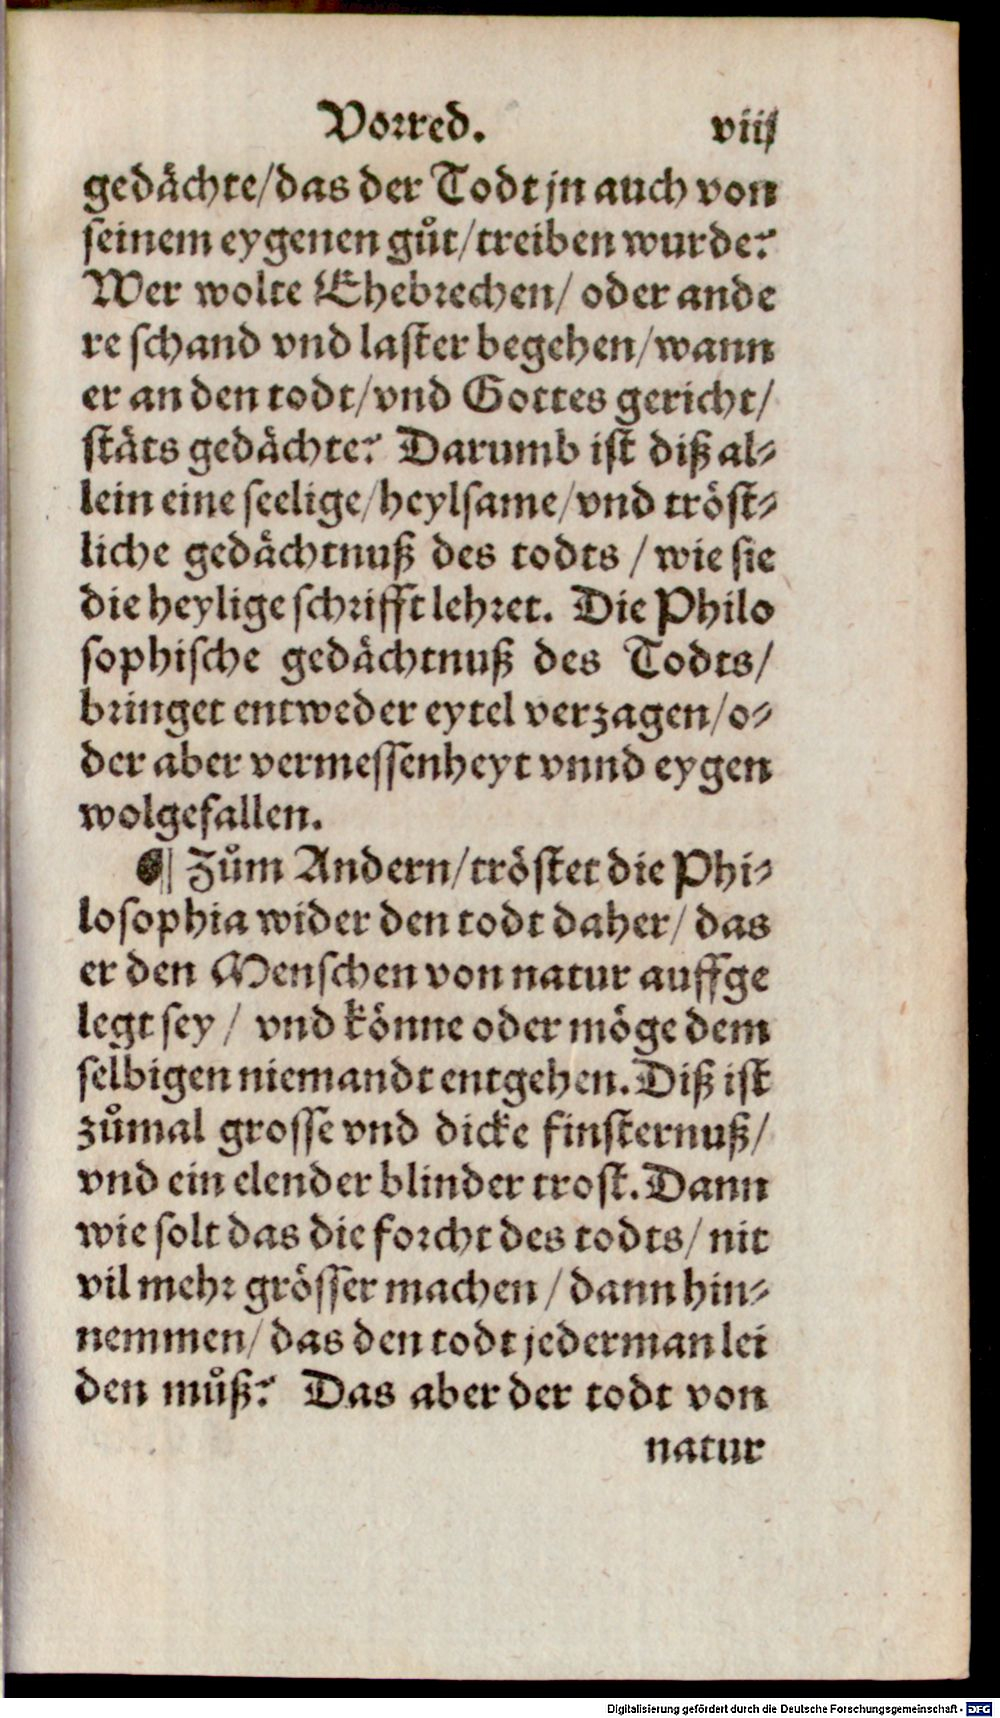 Vorred. viij
gedächte/das der Todt jn auch von
seinem eygenen gůt/treiben wurde?
Wer wolte Ehebrechen/ oder ande
re schand vnd laster begehen/wann
er an den todt/vnd Gottes gericht/
stäts gedächte? Darumb ist diß al-
lein eine seelige/heylsame/vnd tröst-
liche gedächtnuß des todts / wie sie
die heylige schrifft lehret. Die Philo
sophische gedächtnuß des Todts/
bringet entweder eytel verzagen/o-
der aber vermessenheyt vnnd eygen
wolgefallen.
¶ Zům Andern/tröstet die Phi-
losophia wider den todt daher/ das
er den Menschen von natur auffge
legt sey / vnd könne oder möge dem
selbigen niemandt entgehen. Diß ist
zůmal grosse vnd dicke finsternuß/
vnd ein elender blinder trost. Dann
wie solt das die forcht des todts/ nit
vil mehr grösser machen / dann hin-
nemmen/ das den todt jederman lei
den můß? Das aber der todt von
natur
Digitalisierung gefördert durch die Deutsche Forschungsgemeinschaft - DFG